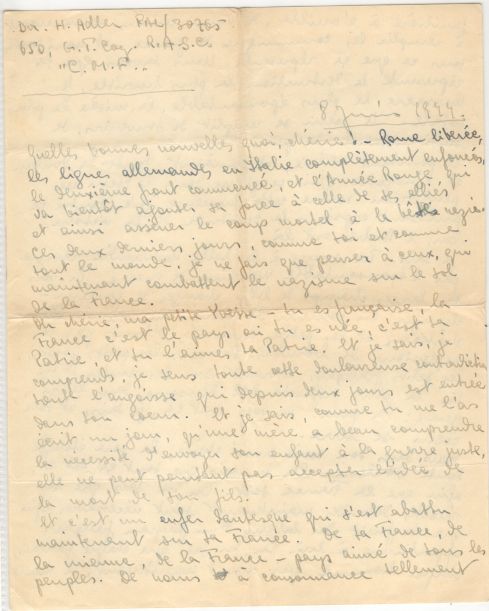 Dvr. H. Adler PAL/30765
650, G.T. Coy. R.A.S.C.
"C.M.F."
8 juin 1944.
Quelles bonnes nouvelles quoi, chérie! - Rome libérée,
les lignes allemandes en Italie complètement enfoncées,
le deuxième front commencé, et l'Armée Rouge qui
va bientôt ajouter sa force à celle de ses alliés
et ainsi asséner le coup mortel à la bête nazie.
Ces deux derniers jours, comme toi et comme
tout le monde, je ne fais que penser à ceux, qui
maintenant combattent le nazisme sur le sol
de la France.
Oh chérie, ma petite Yvette - tu es française, la
France c'est le pays où tu es née, c'est ta
Patrie, et tu l'aimes ta Patrie. Et je sais, je
comprends, je sens toute cette douloureuse contradiction
toute l'angoisse qui depuis deux jours est entrée
dans ton coeur. Et je sais, comme tu me l'as
écrit un jour, qu'une mère a beau comprendre
la nécessité d'envoyer son enfant à la guerre juste,
elle ne peut pourtant pas accepter l'idée de
la mort de son fils.
Et c'est un enfer dantesque qui s'est abattu
maintenant sur ta France. De ta France, de
la mienne, de la France - pays aimé de tous les
peuples. De noms à consonnance tellement